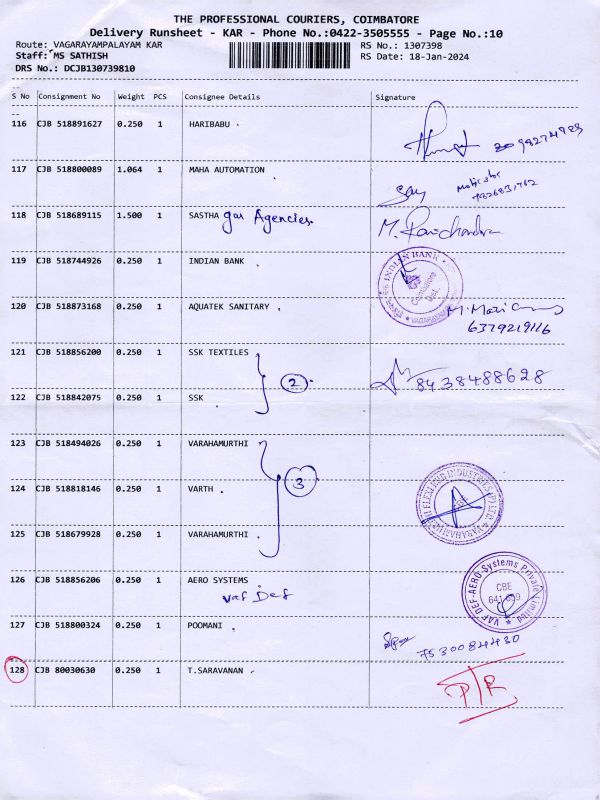 THE PROFESSIONAL COURIERS, COIMBATORE
Delivery Runsheet - KAR - Phone No.:0422-3505555 - Page No.:10
Route: VAGARAYAMPALAYAM KAR RS No.: 1307398
Staff: MS SATHISH RS Date: 18-Jan-2024
DRS No.: DCJB130739810
S No Consignment No Weight PCS Consignee Details Signature
116 CJB 518891627 0.250 1 HARIBABU
117 CJB 518800089 1.064 1 MAHA AUTOMATION
118 CJB 518689115 1.500 1 SASTHA gas Agencies. M. Ravichandra
119 CJB 518744926 0.250 1 INDIAN BANK
INDIAN BANK
Coimbatore
Dist.
120 CJB 518873168 0.250 1 AQUATEK SANITARY
6379219116
121 CJB 518856200 0.250 1 SSK TEXTILES
2 8438488628
122 CJB 518842075 0.250 1 SSK
123 CJB 518494026 0.250 1 VARAHAMURTHI
124 CJB 518818146 0.250 1 VARTH
3
125 CJB 518679928 0.250 1 VARAHAMURTHI
126 CJB 518856206 0.250 1 AERO SYSTEMS
Vaf Def
VAF DEF-AERO Systems Private Limited
CBE
127 CJB 518800324 0.250 1 POOMANI
7530084430
128 CJB 80030630 0.250 1 T.SARAVANAN